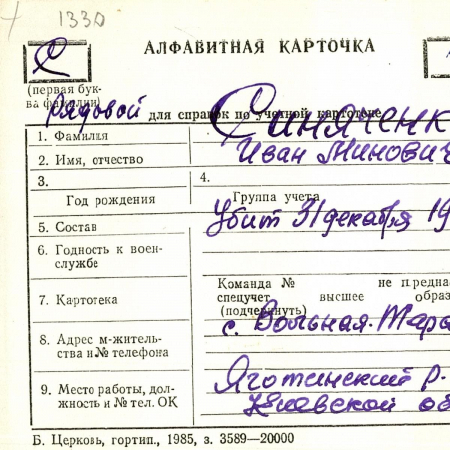 1330
С
АЛФАВИТНАЯ КАРТОЧКА
(первая бук-
ва фамилии)
Рядовой
для справок по учетной картотеке
1. Фамилия Синяченк
2. Имя, отчество Иван Минович
3. 4.
Год рождения Группа учета
5. Состав Убит 31 декабря 19
6. Годность к воен-
службе
Команда № не предна
7. Картотека спецучет высшее образ
(подчеркнуть)
с. Вольная-Тара
8. Адрес м-житель-
ства и № телефона
Яготинский р.
9. Место работы, дол-
жность и № тел. ОК
Киевской об
Б. Церковь, гортип., 1985, з. 3589—20000